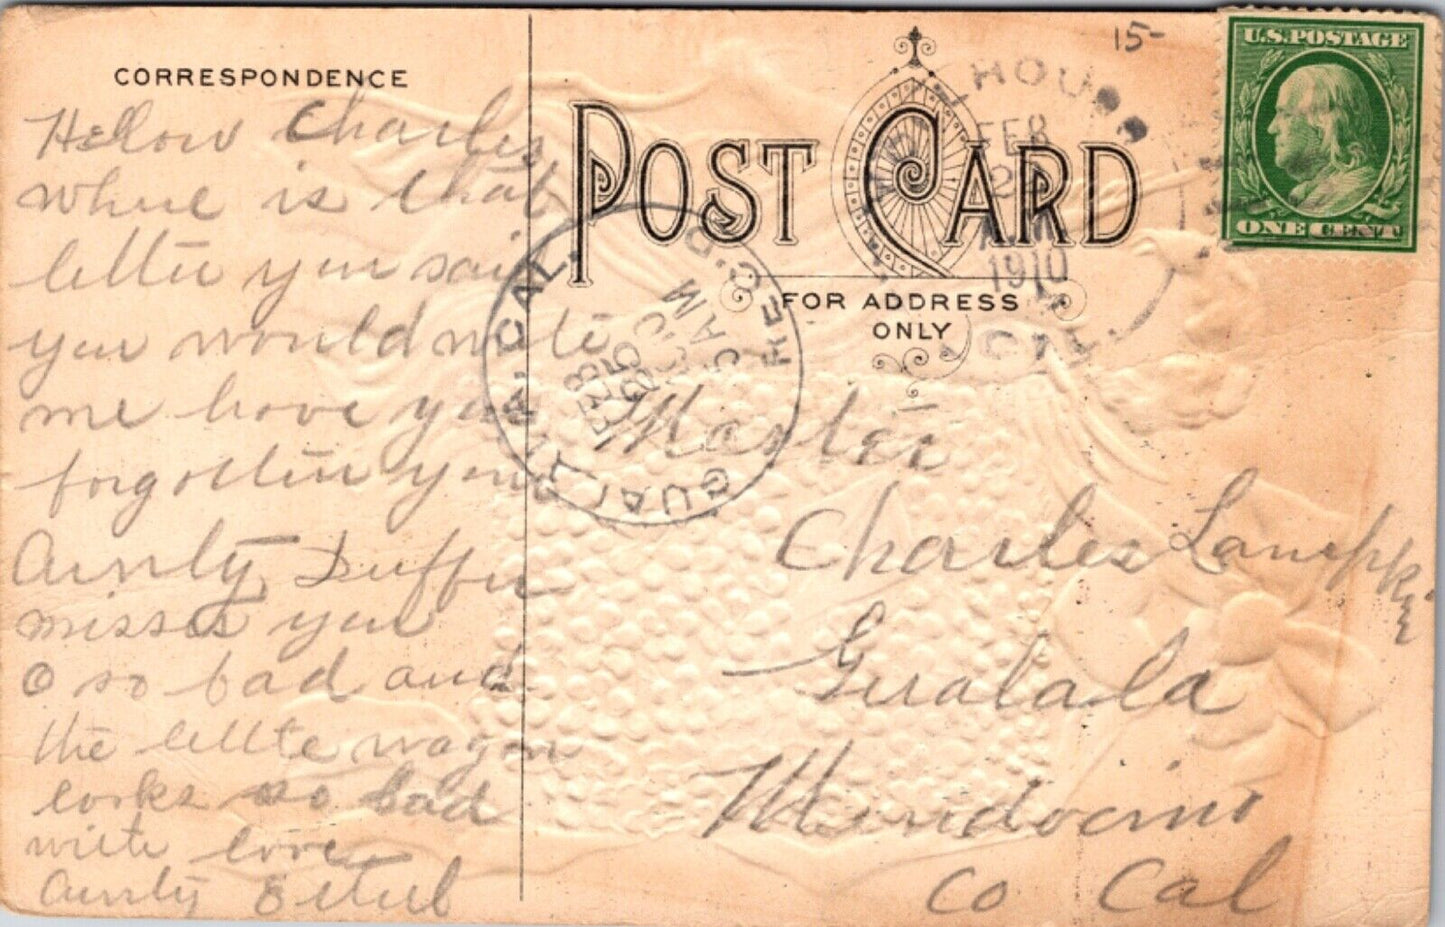 CORRESPONDENCE
Hellow Charles
where is that
letter you said
you would write
me have you
forgotten your
Aunty Duffie
misses you
O so bad and
the little wagon
looks so bad
with love
Aunty Ethel
15-
POST CARD
FOR ADDRESS
ONLY
FEB
AM
1910
CAL.
GUALALA, CAL.
REC'D.
FEB
25
5 AM
U.S. POSTAGE
ONE CENT
Master
Charles
Gualala
Mendocino
Co Cal